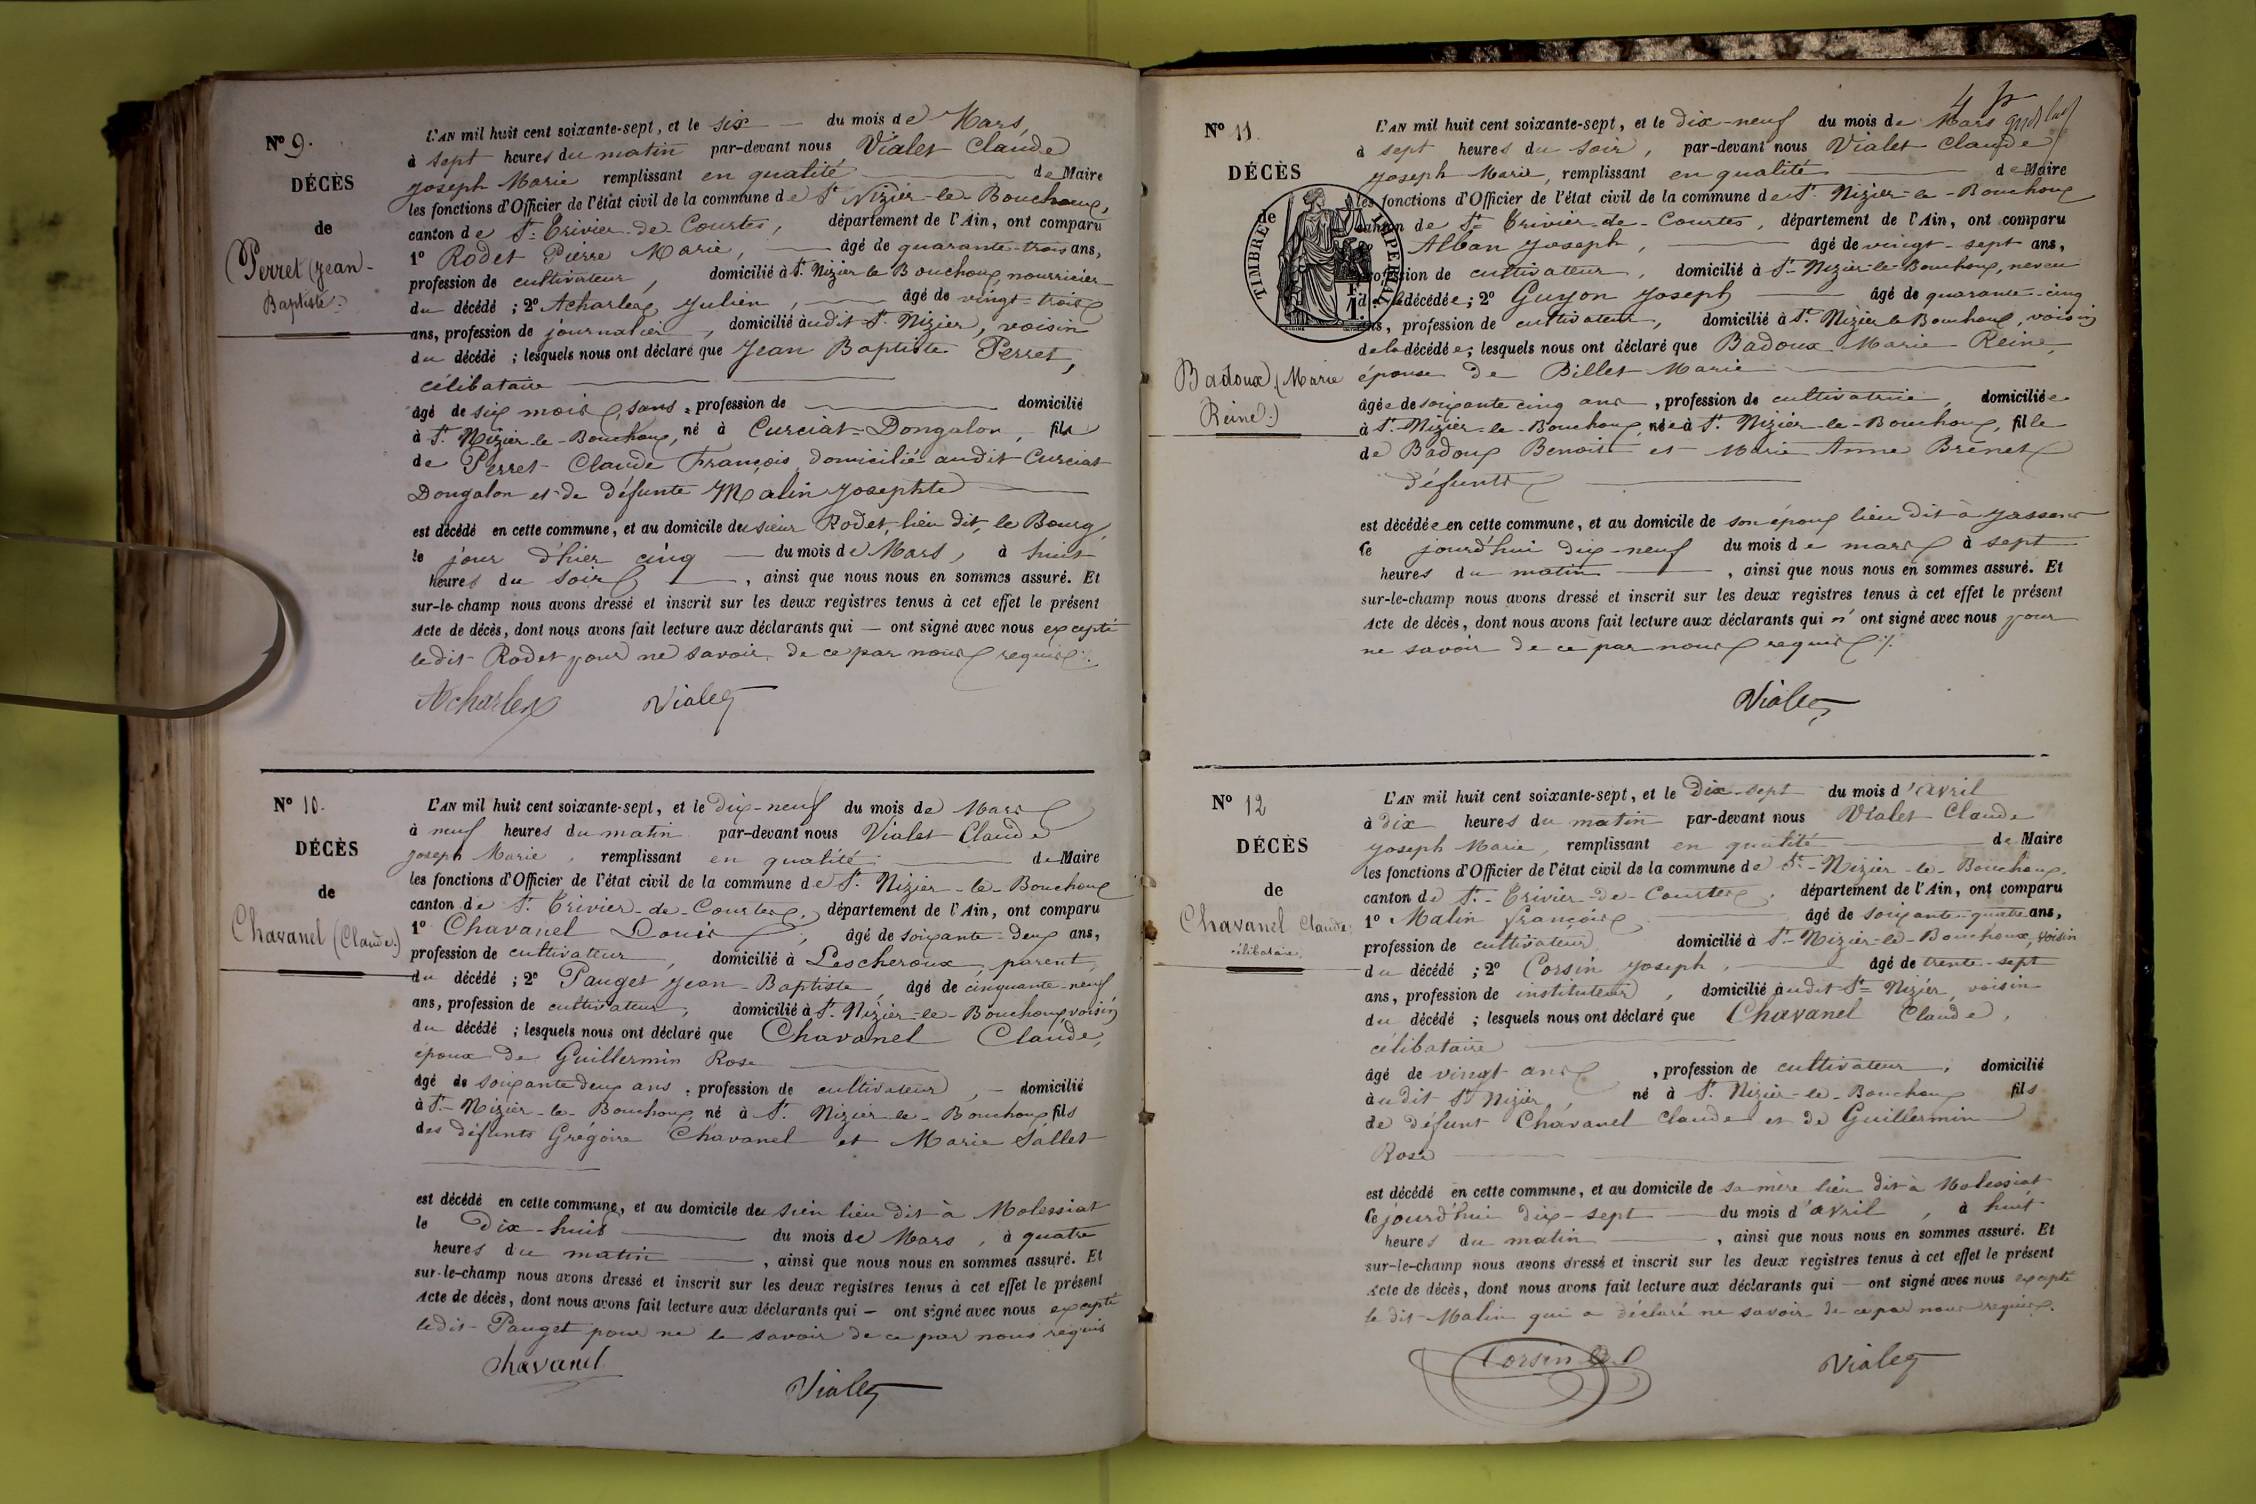 N° 9.
DÉCÈS
de
Perret (Jean-
Baptiste.)
L'AN mil huit cent soixante-sept, et le six du mois de Mars,
à sept heures du matin par-devant nous Vialet Claude
Joseph Marie remplissant en qualité de Maire
les fonctions d'Officier de l'état civil de la commune de St Nizier-le-Bouchoux,
canton de St Trivier-de-Courtes, département de l'Ain, ont comparu
1° Rodet Pierre Marie, âgé de quarante-trois ans,
profession de cultivateur, domicilié à St Nizier le Bouchoux, nourricier
du décédé ; 2° Acharles Julien, âgé de vingt-trois
ans, profession de journalier, domicilié audit St Nizier, voisin
du décédé ; lesquels nous ont déclaré que Jean Baptiste Perret,
célibataire
âgé de six mois, sans profession de domicilié
à St Nizier-le-Bouchoux, né à Curciat-Dongalon, fils
de Perret Claude François domicilié audit Curciat
Dongalon et de défunte Malin Josephte
est décédé en cette commune, et au domicile du sieur Rodet, lieu dit, le Bourg,
le jour d'hier cinq du mois de Mars, à huit
heures du soir, ainsi que nous nous en sommes assuré. Et
sur-le-champ nous avons dressé et inscrit sur les deux registres tenus à cet effet le présent
Acte de décès, dont nous avons fait lecture aux déclarants qui — ont signé avec nous excepté
ledit Rodet pour ne savoir de ce par nous requis ./.
Acharles Vialet
N° 10.
DÉCÈS
de
Chavanel (Claude.)
L'AN mil huit cent soixante-sept, et le dix-neuf du mois de Mars
à neuf heures du matin par-devant nous Vialet Claude
Joseph Marie, remplissant en qualité de Maire
les fonctions d'Officier de l'état civil de la commune de St Nizier-le-Bouchoux
canton de St Trivier-de-Courtes, département de l'Ain, ont comparu
1° Chavanel Louis, âgé de soixante-deux ans,
profession de cultivateur, domicilié à Lescheroux, parent
du décédé ; 2° Pauget Jean-Baptiste, âgé de cinquante-neuf
ans, profession de cultivateur, domicilié à St Nizier-le-Bouchoux, voisin
du décédé ; lesquels nous ont déclaré que Chavanel Claude,
époux de Guillermin Rose
âgé de soixante deux ans, profession de cultivateur, domicilié
à St Nizier-le-Bouchoux né à St Nizier-le-Bouchoux fils
des défunts Grégoire Chavanel et Marie Sallet
est décédé en cette commune, et au domicile du sien lieu dit à Molessiat
le Dix-huit du mois de Mars, à quatre
heures du matin, ainsi que nous nous en sommes assuré. Et
sur-le-champ nous avons dressé et inscrit sur les deux registres tenus à cet effet le présent
Acte de décès, dont nous avons fait lecture aux déclarants qui — ont signé avec nous excepté
ledit Pauget pour ne le savoir de ce par nous requis
Chavanel
Vialet
4
N° 11.
DÉCÈS
de
TIMBRE IMPERIAL
F.
1.
Badoux (Marie
Reine.)
L'AN mil huit cent soixante-sept, et le dix-neuf du mois de Mars
à sept heures du soir, par-devant nous Vialet Claude
Joseph Marie, remplissant en qualité de Maire
les fonctions d'Officier de l'état civil de la commune de St Nizier-le-Bouchoux
canton de St Trivier-de-Courtes, département de l'Ain, ont comparu
Alban Joseph, âgé de vingt-sept ans,
profession de cultivateur, domicilié à St Nizier-le-Bouchoux, neveu
de la décédée ; 2° Guyon Joseph âgé de quarante-cinq
ans, profession de cultivateur, domicilié à St Nizier le Bouchoux, voisin
de la décédée ; lesquels nous ont déclaré que Badoux Marie Reine,
épouse de Billet Marie
âgée de soixante cinq ans, profession de cultivatrice, domiciliée
à St Nizier-le-Bouchoux, née à St Nizier-le-Bouchoux, fille
de Badoux Benoist et Marie Anne Brenet
défunts
est décédée en cette commune, et au domicile de son époux lieu dit à Jassens
ce jourd'hui dix-neuf du mois de mars à sept
heures du matin, ainsi que nous nous en sommes assuré. Et
sur-le-champ nous avons dressé et inscrit sur les deux registres tenus à cet effet le présent
Acte de décès, dont nous avons fait lecture aux déclarants qui n' ont signé avec nous pour
ne savoir de ce par nous requis ./.
Vialet
N° 12
DÉCÈS
de
Chavanel Claude,
célibataire.
L'AN mil huit cent soixante-sept, et le Dix-sept du mois d'avril
à dix heures du matin par-devant nous Vialet Claude
Joseph Marie, remplissant en qualité de Maire
les fonctions d'Officier de l'état civil de la commune de St Nizier-le-Bouchoux.
canton de St Trivier-de-Courtes, département de l'Ain, ont comparu
1° Malin François âgé de soixante-quatre ans,
profession de cultivateur domicilié à St Nizier-le-Bouchoux, voisin
du décédé ; 2° Corsin Joseph, âgé de trente-sept
ans, profession de instituteur, domicilié audit St Nizier, voisin
du décédé ; lesquels nous ont déclaré que Chavanel Claude,
célibataire
âgé de vingt ans, profession de cultivateur, domicilié
audit St Nizier, né à St Nizier-le-Bouchoux fils
de défunt Chavanel Claude et de Guillermin
Rose
est décédé en cette commune, et au domicile de sa mère lieu dit à Molessiat
ce jourd'hui dix-sept du mois d'avril, à huit
heures du matin, ainsi que nous nous en sommes assuré. Et
sur-le-champ nous avons dressé et inscrit sur les deux registres tenus à cet effet le présent
Acte de décès, dont nous avons fait lecture aux déclarants qui — ont signé avec nous excepté
le dit Malin qui a déclaré ne savoir de ce par nous requis.
Corsin Vialet